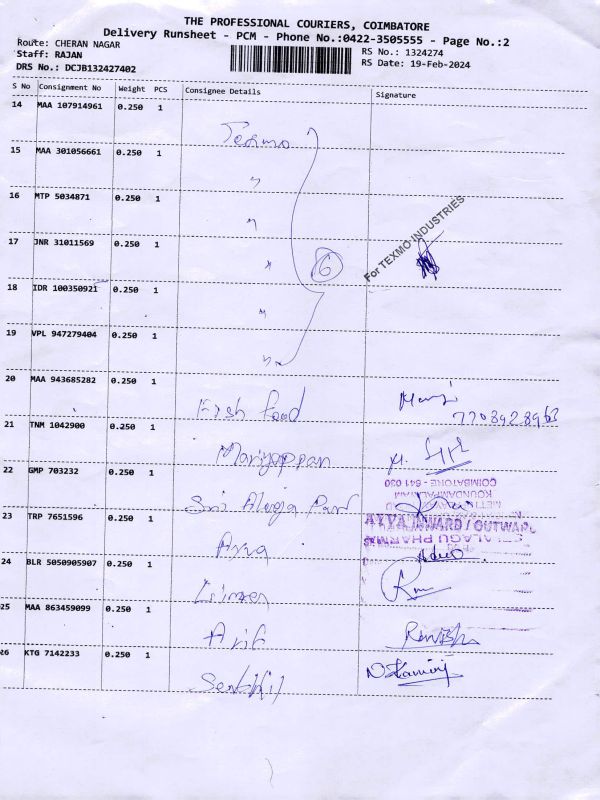 THE PROFESSIONAL COURIERS, COIMBATORE
Delivery Runsheet - PCM - Phone No.:0422-3505555 - Page No.:2
Route: CHERAN NAGAR
Staff: RAJAN
DRS No.: DCJB132427402
RS No.: 1324274
RS Date: 19-Feb-2024
S No Consignment No Weight PCS Consignee Details Signature
14 MAA 107914961 0.250 1 Texmo
15 MAA 301056661 0.250 1 "
16 MTP 5034871 0.250 1 "
17 JNR 31011569 0.250 1 " 6 For TEXMO INDUSTRIES
18 IDR 100350921 0.250 1 "
19 VPL 947279404 0.250 1 "
20 MAA 943685282 0.250 1 Fish food
21 TNM 1042900 0.250 1 Mariyappan
22 GMP 703232 0.250 1 Sri
KOUNDAMPALAYAM
COIMBATORE - 641 030
23 TRP 7651596 0.250 1 Ayya INWARD / OUTWARD
ALAGU PHARMA
24 BLR 5050905907 0.250 1
25 MAA 863459099 0.250 1 Arif
26 KTG 7142233 0.250 1 Senthil